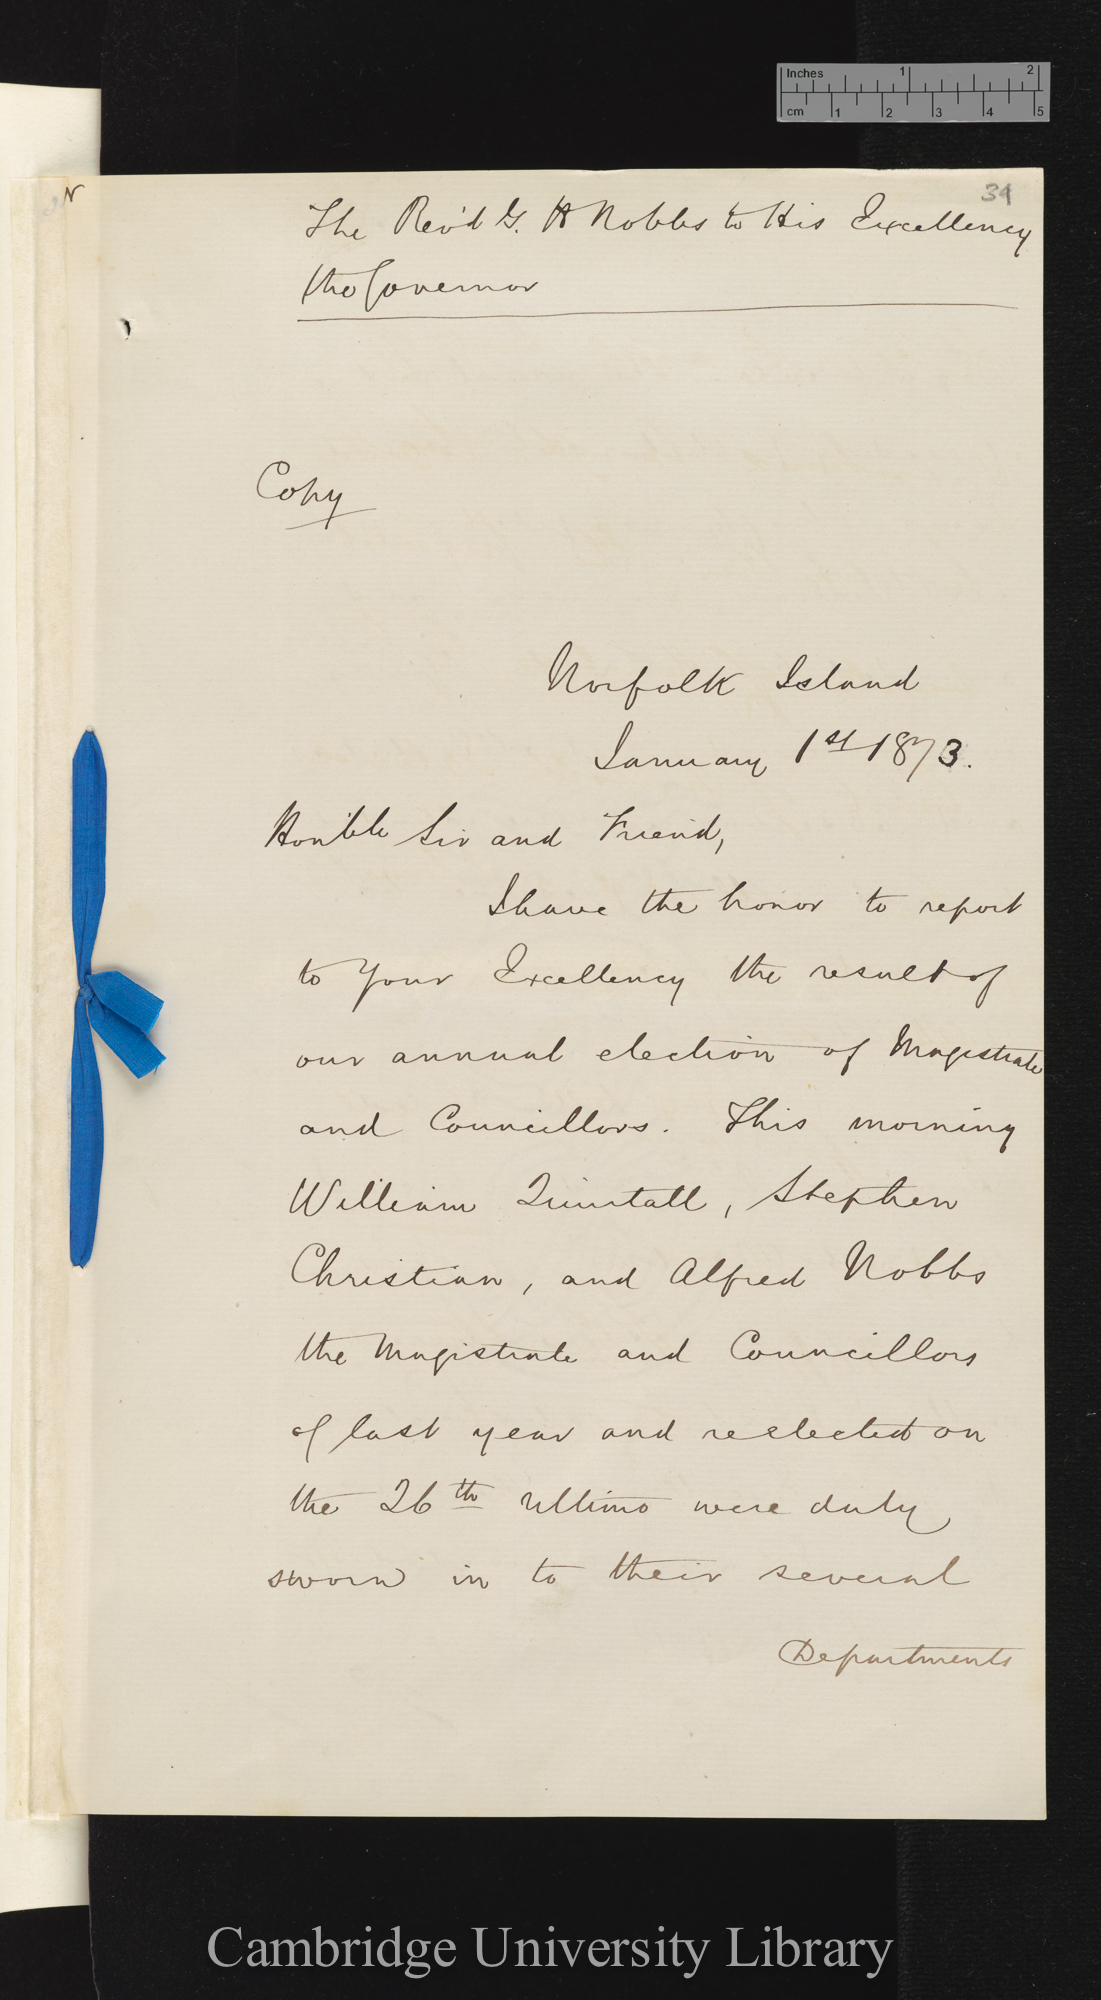 Inches 1 2
cm 1 2 3 4 5
39
The Rev'd G. H Nobbs to His Excellency
the Governor
Copy
Norfolk Island
January 1st 1873.
Hon'ble Sir and Friend,
I have the honor to report
to Your Excellency the result of
our annual election of Magistrate
and Councillors. This morning
William Quintall, Stephen
Christian, and Alfred Nobbs
the Magistrate and Councillors
of last year and reelected on
the 26th Ultimo were duly
sworn in to their several
Departments
Cambridge University Library